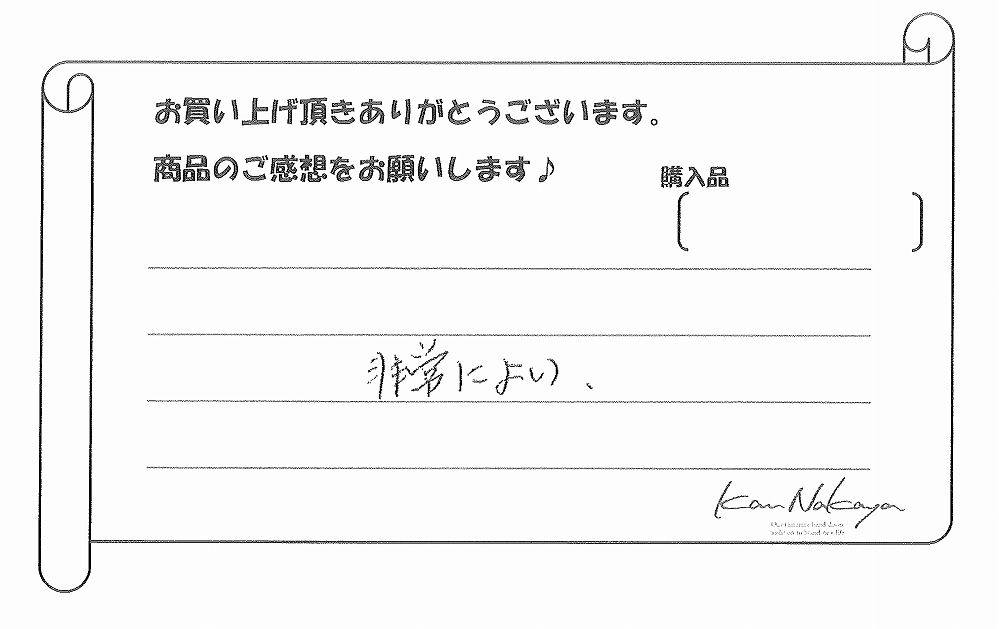 お買い上げ頂きありがとうございます。
商品のご感想をお願いします♪
購入品
非常によい、
Kan Nakaya